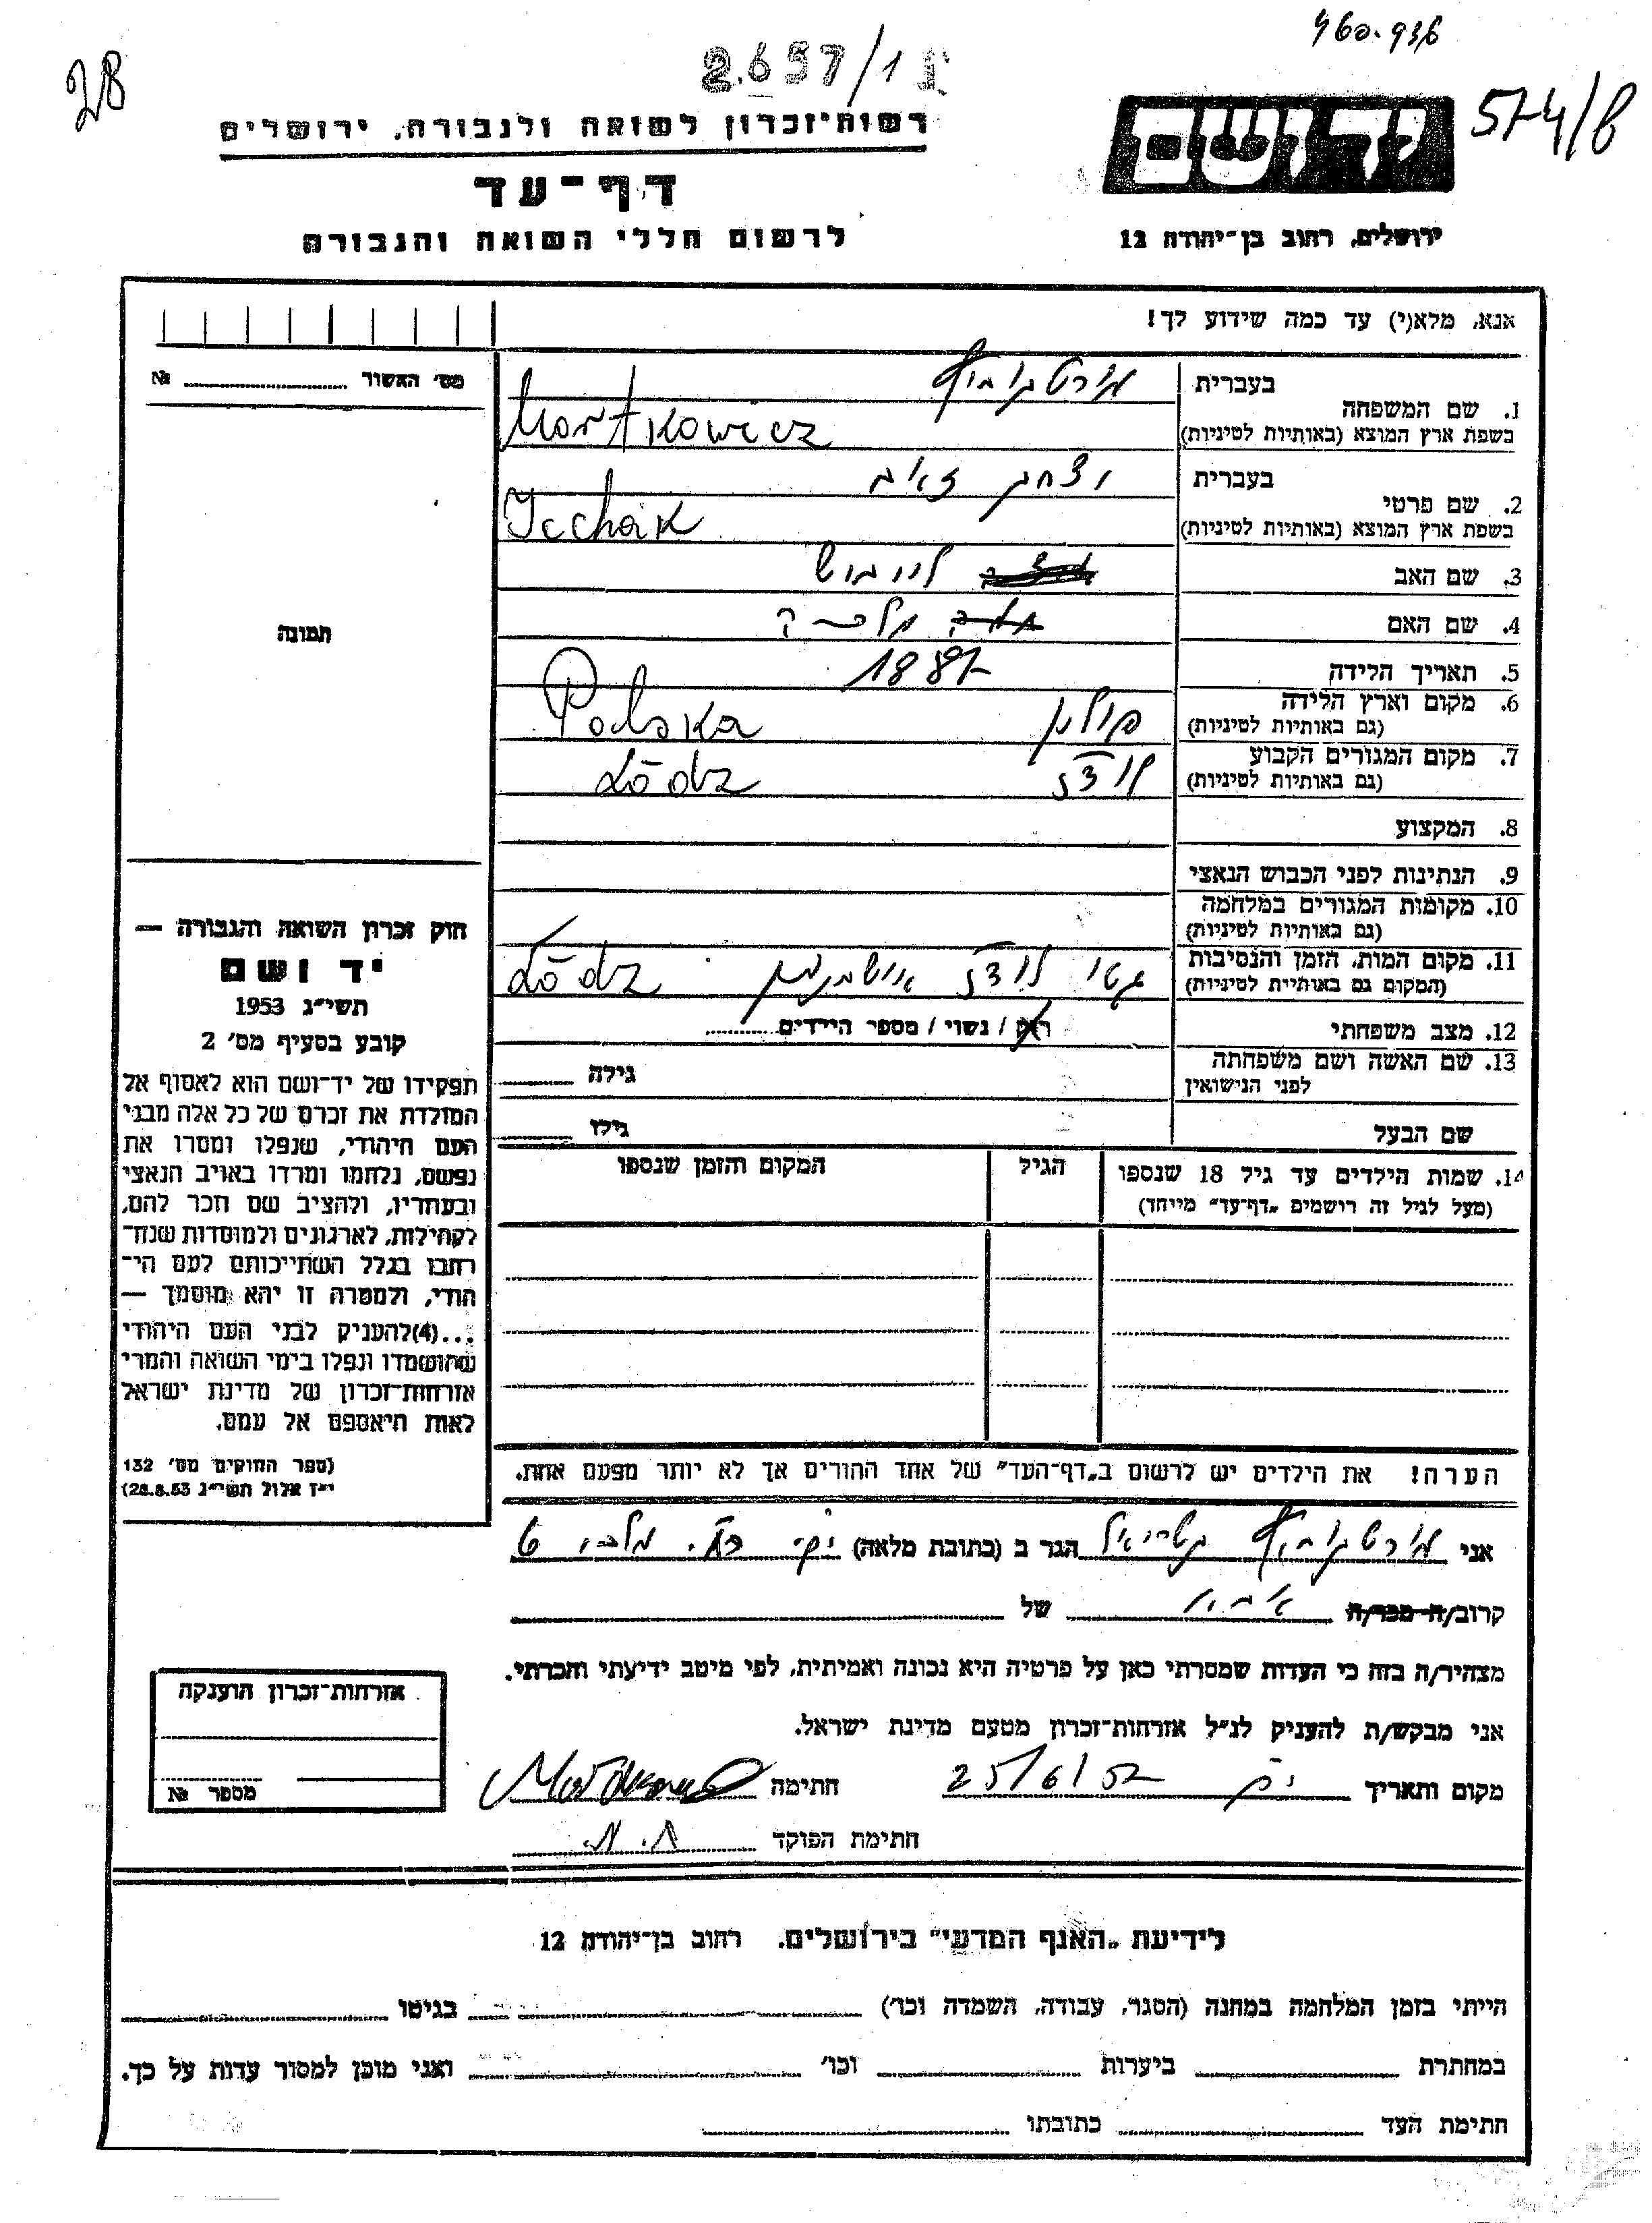 28
2657/1
460.936
574/8
רשות־זכרון לשואה ולגבורה, ירושלים
דף־עד
לרשום חללי השואה והגבורה
יד ושם
ירושלים, רחוב בן־יהודה 12
אנא, מלא(י) עד כמה שידוע לך!
מס' האשור № 
1. שם המשפחה
בעברית מורטקוביץ
בשפת ארץ המוצא (באותיות לטיניות) Mortkowicz
2. שם פרטי
בעברית יצחק זאב
בשפת ארץ המוצא (באותיות לטיניות) Icchak
3. שם האב לייבוש
4. שם האם מלכה
5. תאריך הלידה 1887
6. מקום וארץ הלידה
(גם באותיות לטיניות) פולין Polska
7. מקום המגורים הקבוע
(גם באותיות לטיניות) לודז Łódz
8. המקצוע
9. הנתינות לפני הכבוש הנאצי
10. מקומות המגורים במלחמה
(גם באותיות לטיניות)
11. מקום המות, הזמן והנסיבות
(המקום גם באותיית לטיניות) גטו לודז Łódz
12. מצב משפחתי רוק / נשוי / מספר הילדים
13. שם האשה ושם משפחתה
לפני הנישואין גילה
שם הבעל גילו
14. שמות הילדים עד גיל 18 שנספו
(מעל לגיל זה רושמים „דף־עד" מייחד)
הגיל
המקום והזמן שנספו
הערה! את הילדים יש לרשום ב„דף־העד" של אחד ההורים אך לא יותר מפעם אחת.
תמונה
חוק זכרון השואה והגבורה —
יד ושם
תשי"ג 1953
קובע בסעיף מס' 2
תפקידו של יד־ושם הוא לאסוף אל
המולדת את זכרם של כל אלה מבני
העם היהודי, שנפלו ומסרו את
נפשם, נלחמו ומרדו באויב הנאצי
ובעוזריו, ולהציב שם וזכר להם,
לקהילות, לארגונים ולמוסדות שנח־
רבו בגלל השתייכותם לעם הי־
הודי, ולמטרה זו יהא מוסמך —
...(4)להעניק לבני העם היהודי
שהושמדו ונפלו בימי השואה והמרי
אזרחות־זכרון של מדינת ישראל
לאות היאספם אל עמם.
(ספר החוקים מס' 132
י"ז אלול תשי"ג 28.8.53)
אני מורטקוביץ הגר ב (כתובת מלאה)
קרוב/ה מכר/ה אבי של
מצהיר/ה בזה כי העדות שמסרתי כאן על פרטיה היא נכונה ואמיתית, לפי מיטב ידיעתי והכרתי.
אני מבקש/ת להעניק לנ"ל אזרחות־זכרון מטעם מדינת ישראל.
מקום ותאריך 25/6/ חתימה
חתימת הפוקד
אזרחות־זכרון הוענקה
מספר №
לידיעת „האגף המדעי" בירושלים. רחוב בן־יהודה 12
הייתי בזמן המלחמה במחנה (הסגר, עבודה, השמדה וכו') בגיטו
במחתרת ביערות וכו' ואני מוכן למסור עדות על כך.
חתימת העד כתובתו